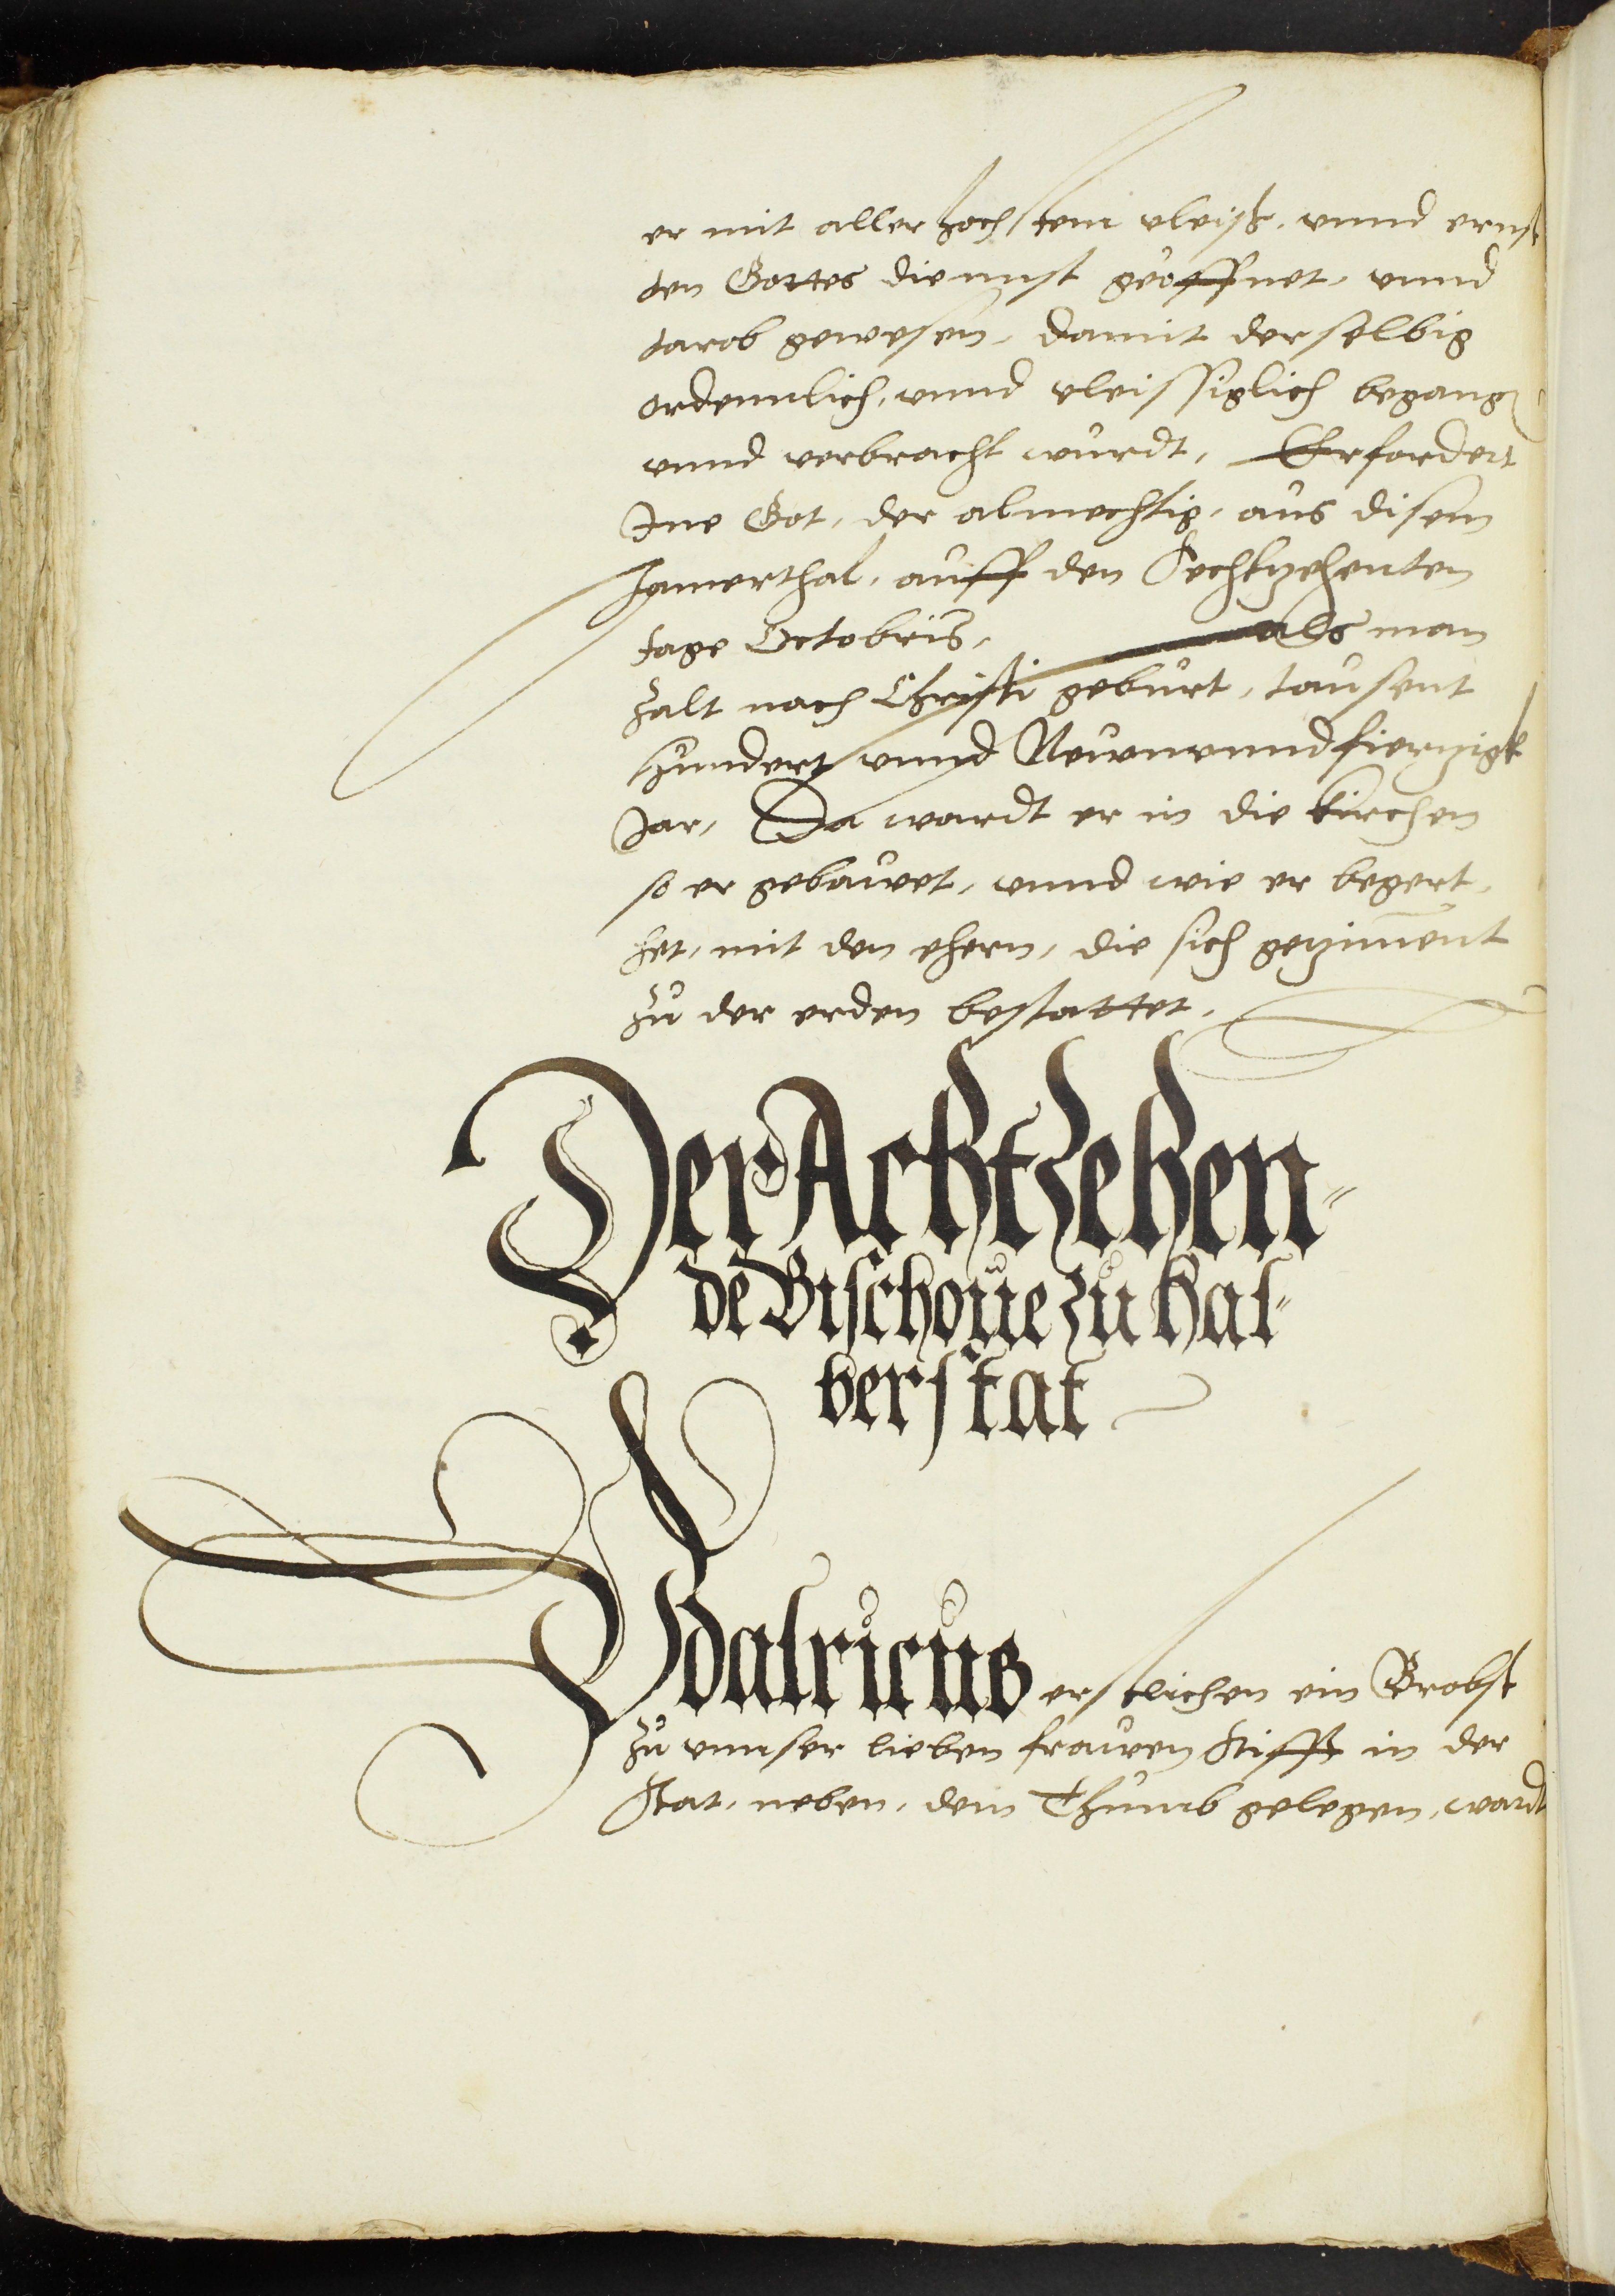 er mit aller hochstem vleiß, vnnd ernst
den Gottes diennst geoffnet, vnnd
darob gewesen, damit derselbig
ordennlich, vnnd vleissiglich begang
vnnd verbracht wurdt, Erfordert
Ine Got, der almechtig, aus disem
Jamerthal, auff den Sechtzehenten
tage Octobris, als man
zalt nach Christi geburt, tausent
hundert vnnd Neunvnndfierzigk
Jar, Da wardt er in die kirchen
so er gebawet, vnnd wie er begert,
het, mit den ehern, die sich gezim̄ent
zu der erden bestattet,
Der Achtzehen-
de Bischoue zu Hal-
berstat
Vdalricus erstlichen ein Brobst
zu vnnser lieben frawen Stifft in der
Stat, neben, dem Thumb gelegen, wardt